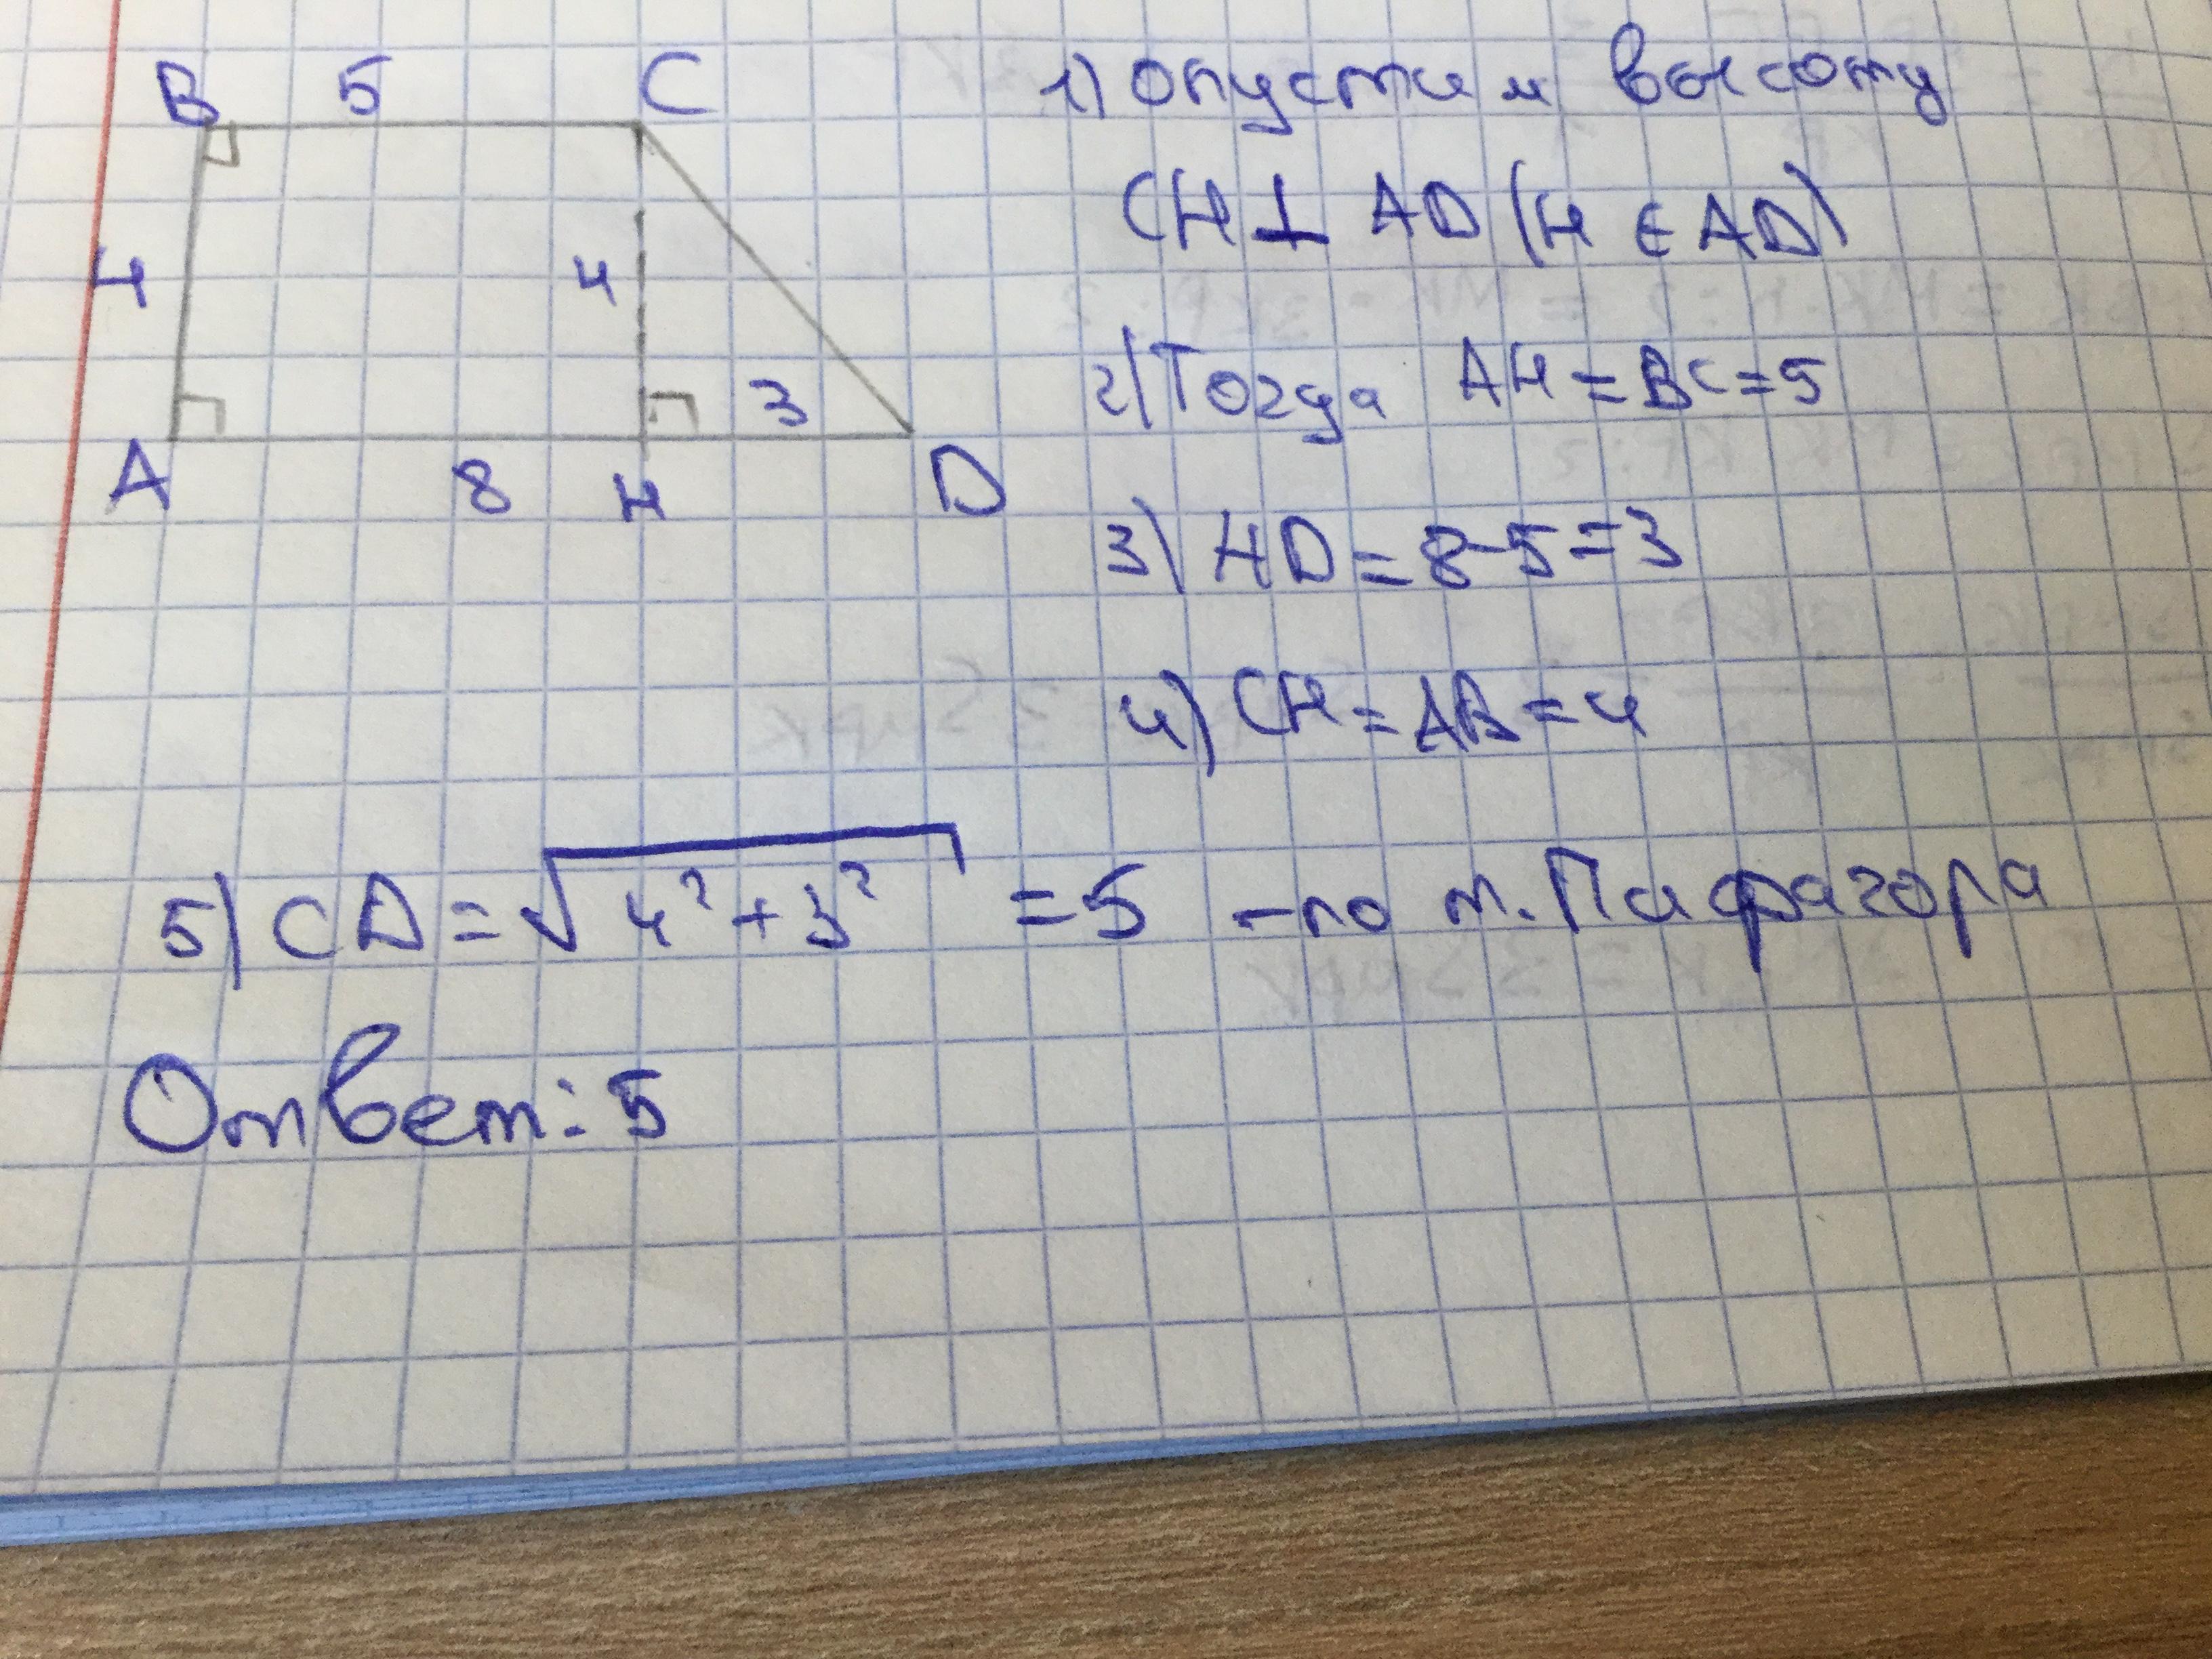 B 5 C
4 4
3
A 8 H D
1) Опустим высоту
CH ⊥ AD (H ∈ AD)
2) Тогда AH = BC = 5
3) HD = 8 - 5 = 3
4) CH = AB = 4
5) CD = √(4² + 3²) = 5 - по т. Пифагора
Ответ: 5